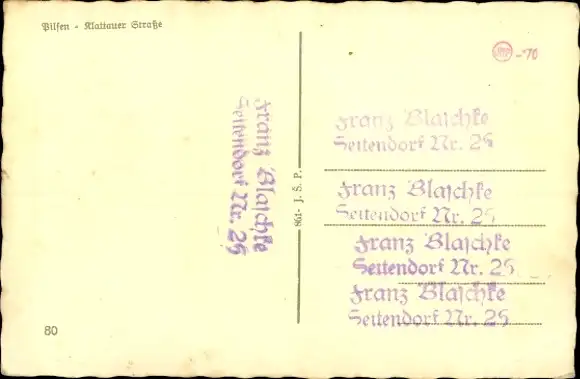 Pilsen - Klattauer Straße
-70
Franz Blaschke
Seitendorf Nr. 25
Franz Blaschke
Seitendorf Nr. 25
861- J. Š. P.
Franz Blaschke
Seitendorf Nr. 25
Franz Blaschke
Seitendorf Nr. 25
Franz Blaschke
Seitendorf Nr. 25
80